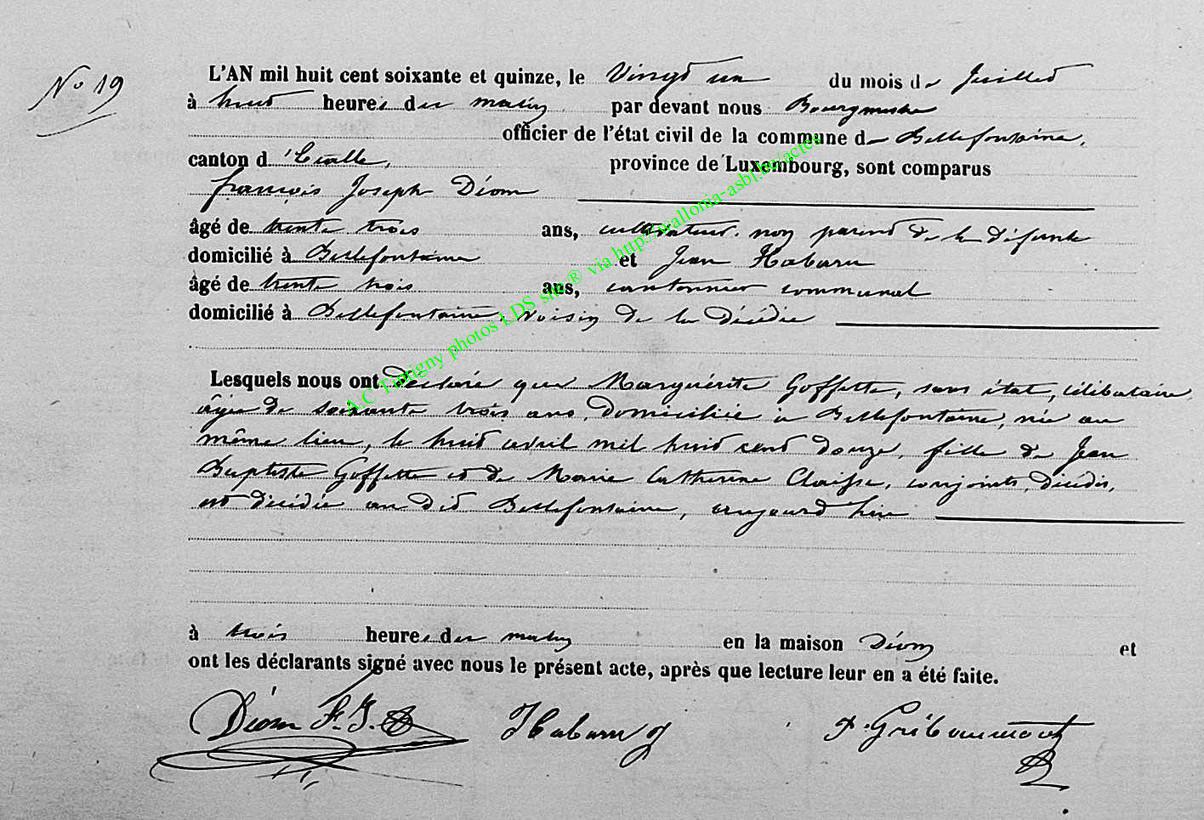 N° 19
L'AN mil huit cent soixante et quinze, le Vingt un du mois de Juillet
à huit heures du matin par devant nous Bourgmestre
officier de l'état civil de la commune de Bellefontaine,
canton d'Etalle, province de Luxembourg, sont comparus
françois Joseph Diom
âgé de trente trois ans, cultivateur, non parent de la défunte
domicilié à Bellefontaine et Jean Habaru
âgé de trente trois ans, cantonnier communal
domicilié à Bellefontaine, voisin de la décédée
Lesquels nous ont déclaré que Marguérite Goffette, sans état, célibataire
âgée de soixante trois ans, domiciliée à Bellefontaine, née au
même lieu, le huit avril mil huit cent douze, fille de Jean
Baptiste Goffette et de Marie Catherine Claisse, conjoints, décédés,
est décédée au dit Bellefontaine, aujourd'hui
à trois heures du matin en la maison Diom et
ont les déclarants signé avec nous le présent acte, après que lecture leur en a été faite.
Diom F. J. Habaru J P. Gribaumont
A.C Tintigny photos LDS site® via http://wallonia-asbl.be/actes